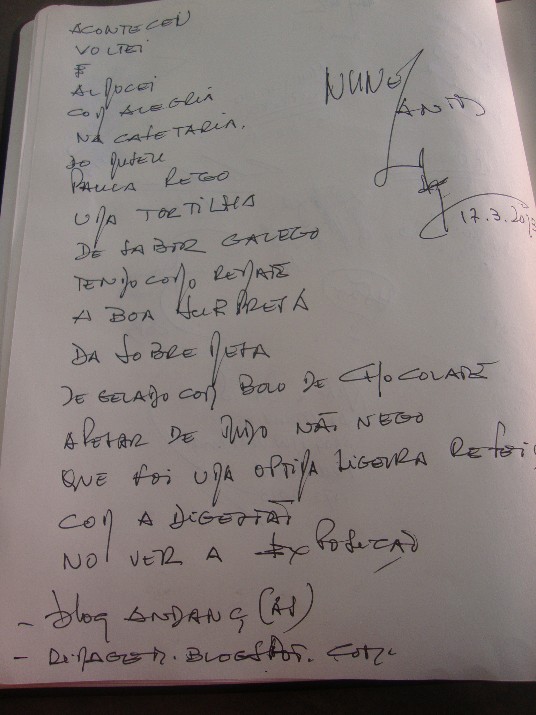 ACONTECEU
VOLTEI
E
ALMOCEI
COM ALEGRIA
NA CAFETARIA.
DO MUSEU
PAULA REGO
UMA TORTILHA
DE SABOR GALEGO
TENDO COMO REMATE
A BOA SURPRESA
DA SOBREMESA
DE GELADO COM BOLO DE CHOCOLATE
APESAR DE TUDO NÃO NEGO
QUE FOI UMA OPTIMA LIGEIRA REFEI
COM A DIGESTÃO
NO VER A EXPOSIÇÃO
- blog ANDANÇ(AS)
- BLOGSPOT. COM
NUNO
17.3.2013